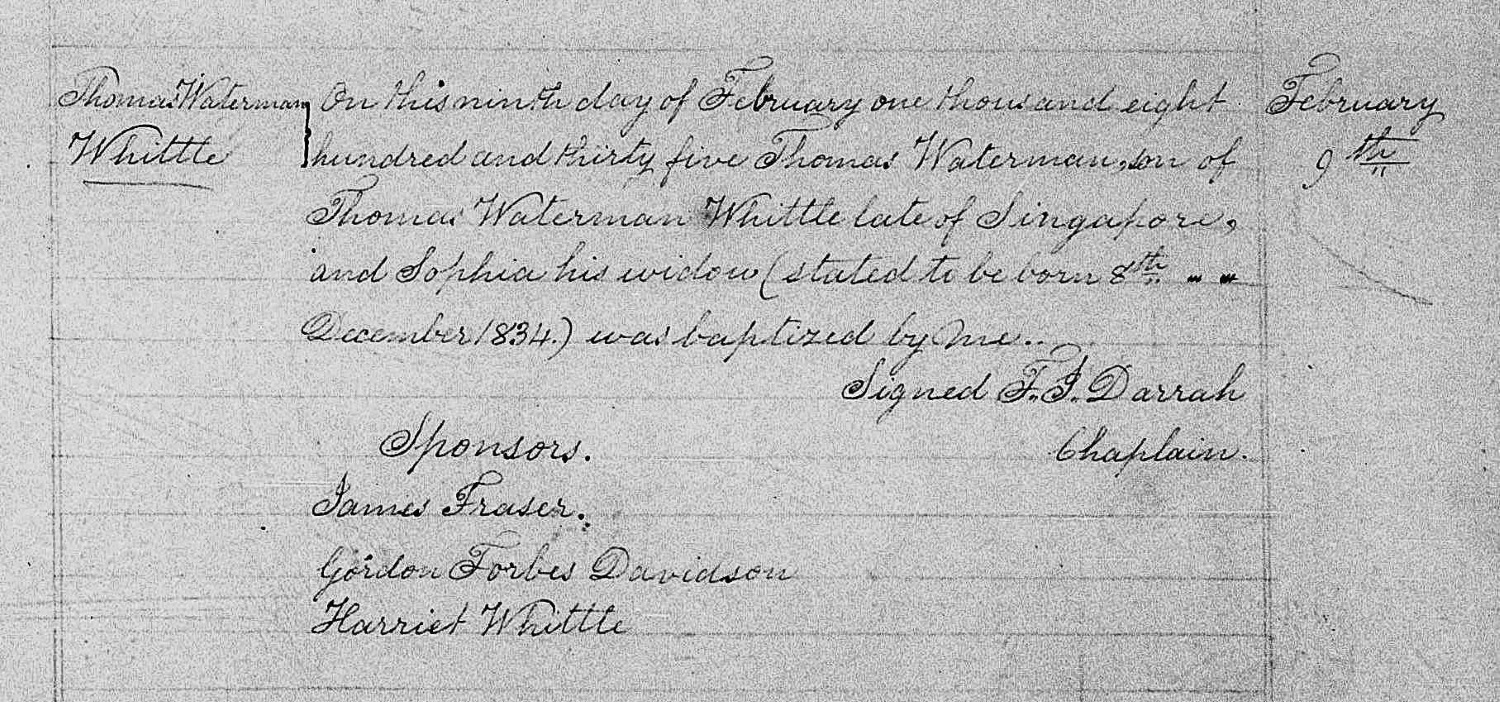 Thomas Waterman
Whittle
On this ninth day of February one thousand eight
hundred and thirty five Thomas Waterman, son of
Thomas Waterman Whittle late of Singapore,
and Sophia his widow (stated to be born 8th " "
December 1834.) was baptized by me..
Signed F. J. Darrah
Chaplain.
Sponsors.
James Fraser.
Gordon Forbes Davidson
Harriet Whittle
February
9th